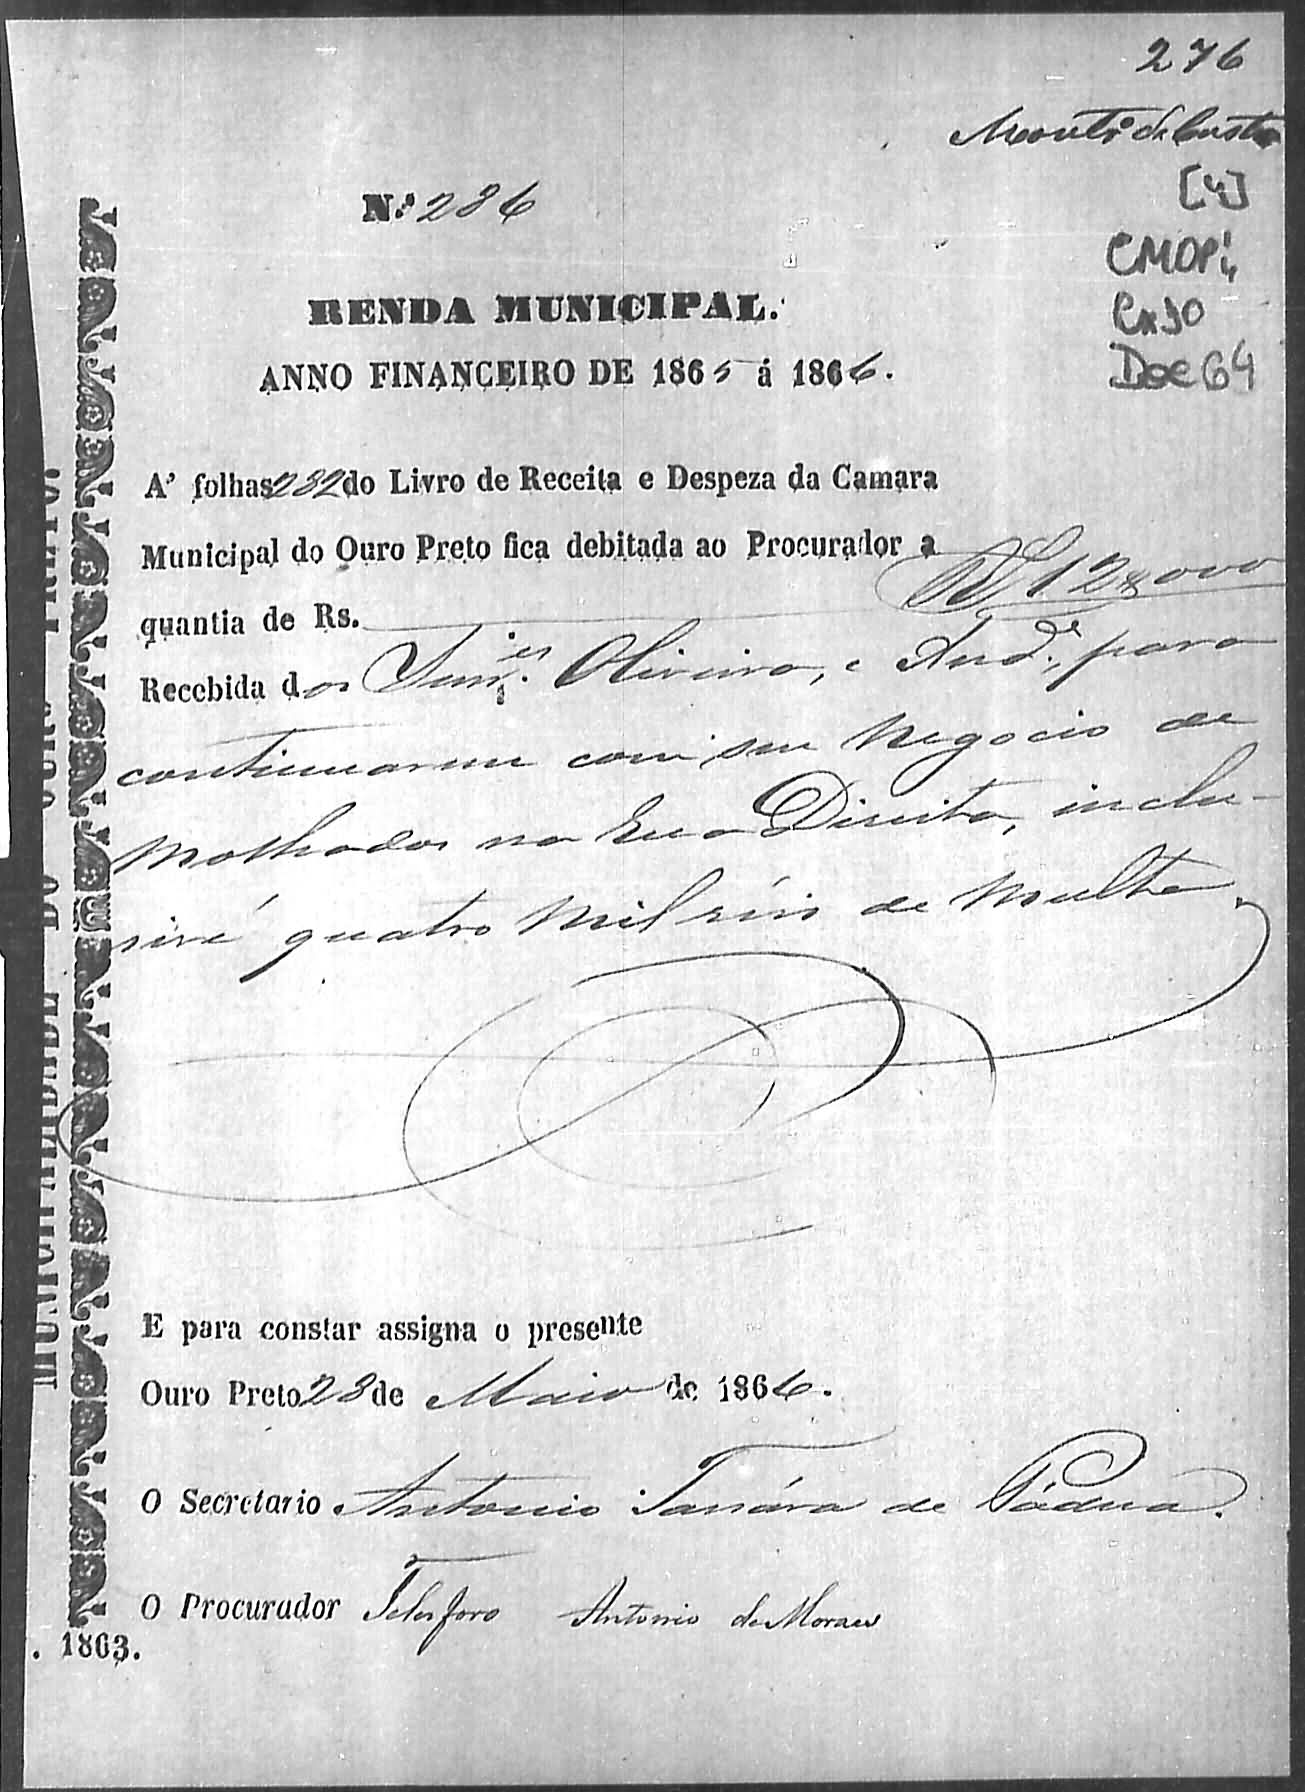 276
[4]
CMOP¼
Cx 90
Doc 64
N.º 236
RENDA MUNICIPAL.
ANNO FINANCEIRO DE 1865 á 1866.
A' folhas 232 do Livro de Receita e Despeza da Camara
Municipal do Ouro Preto fica debitada ao Procurador a
quantia de Rs. 12$000
Recebida dos Oliveira, e And.e, para
continuarem com seu negocio de
Molhados na Rua Direita, inclu-
sivé quatro mil réis de multa.
E para constar assigna o presente
Ouro Preto 23 de Maio de 1866.
O Secretario Antonio de Pádua.
O Procurador Telesforo Antonio de Moraes
. 1863.
MUNICIPALIDADE DO OURO PRETO.